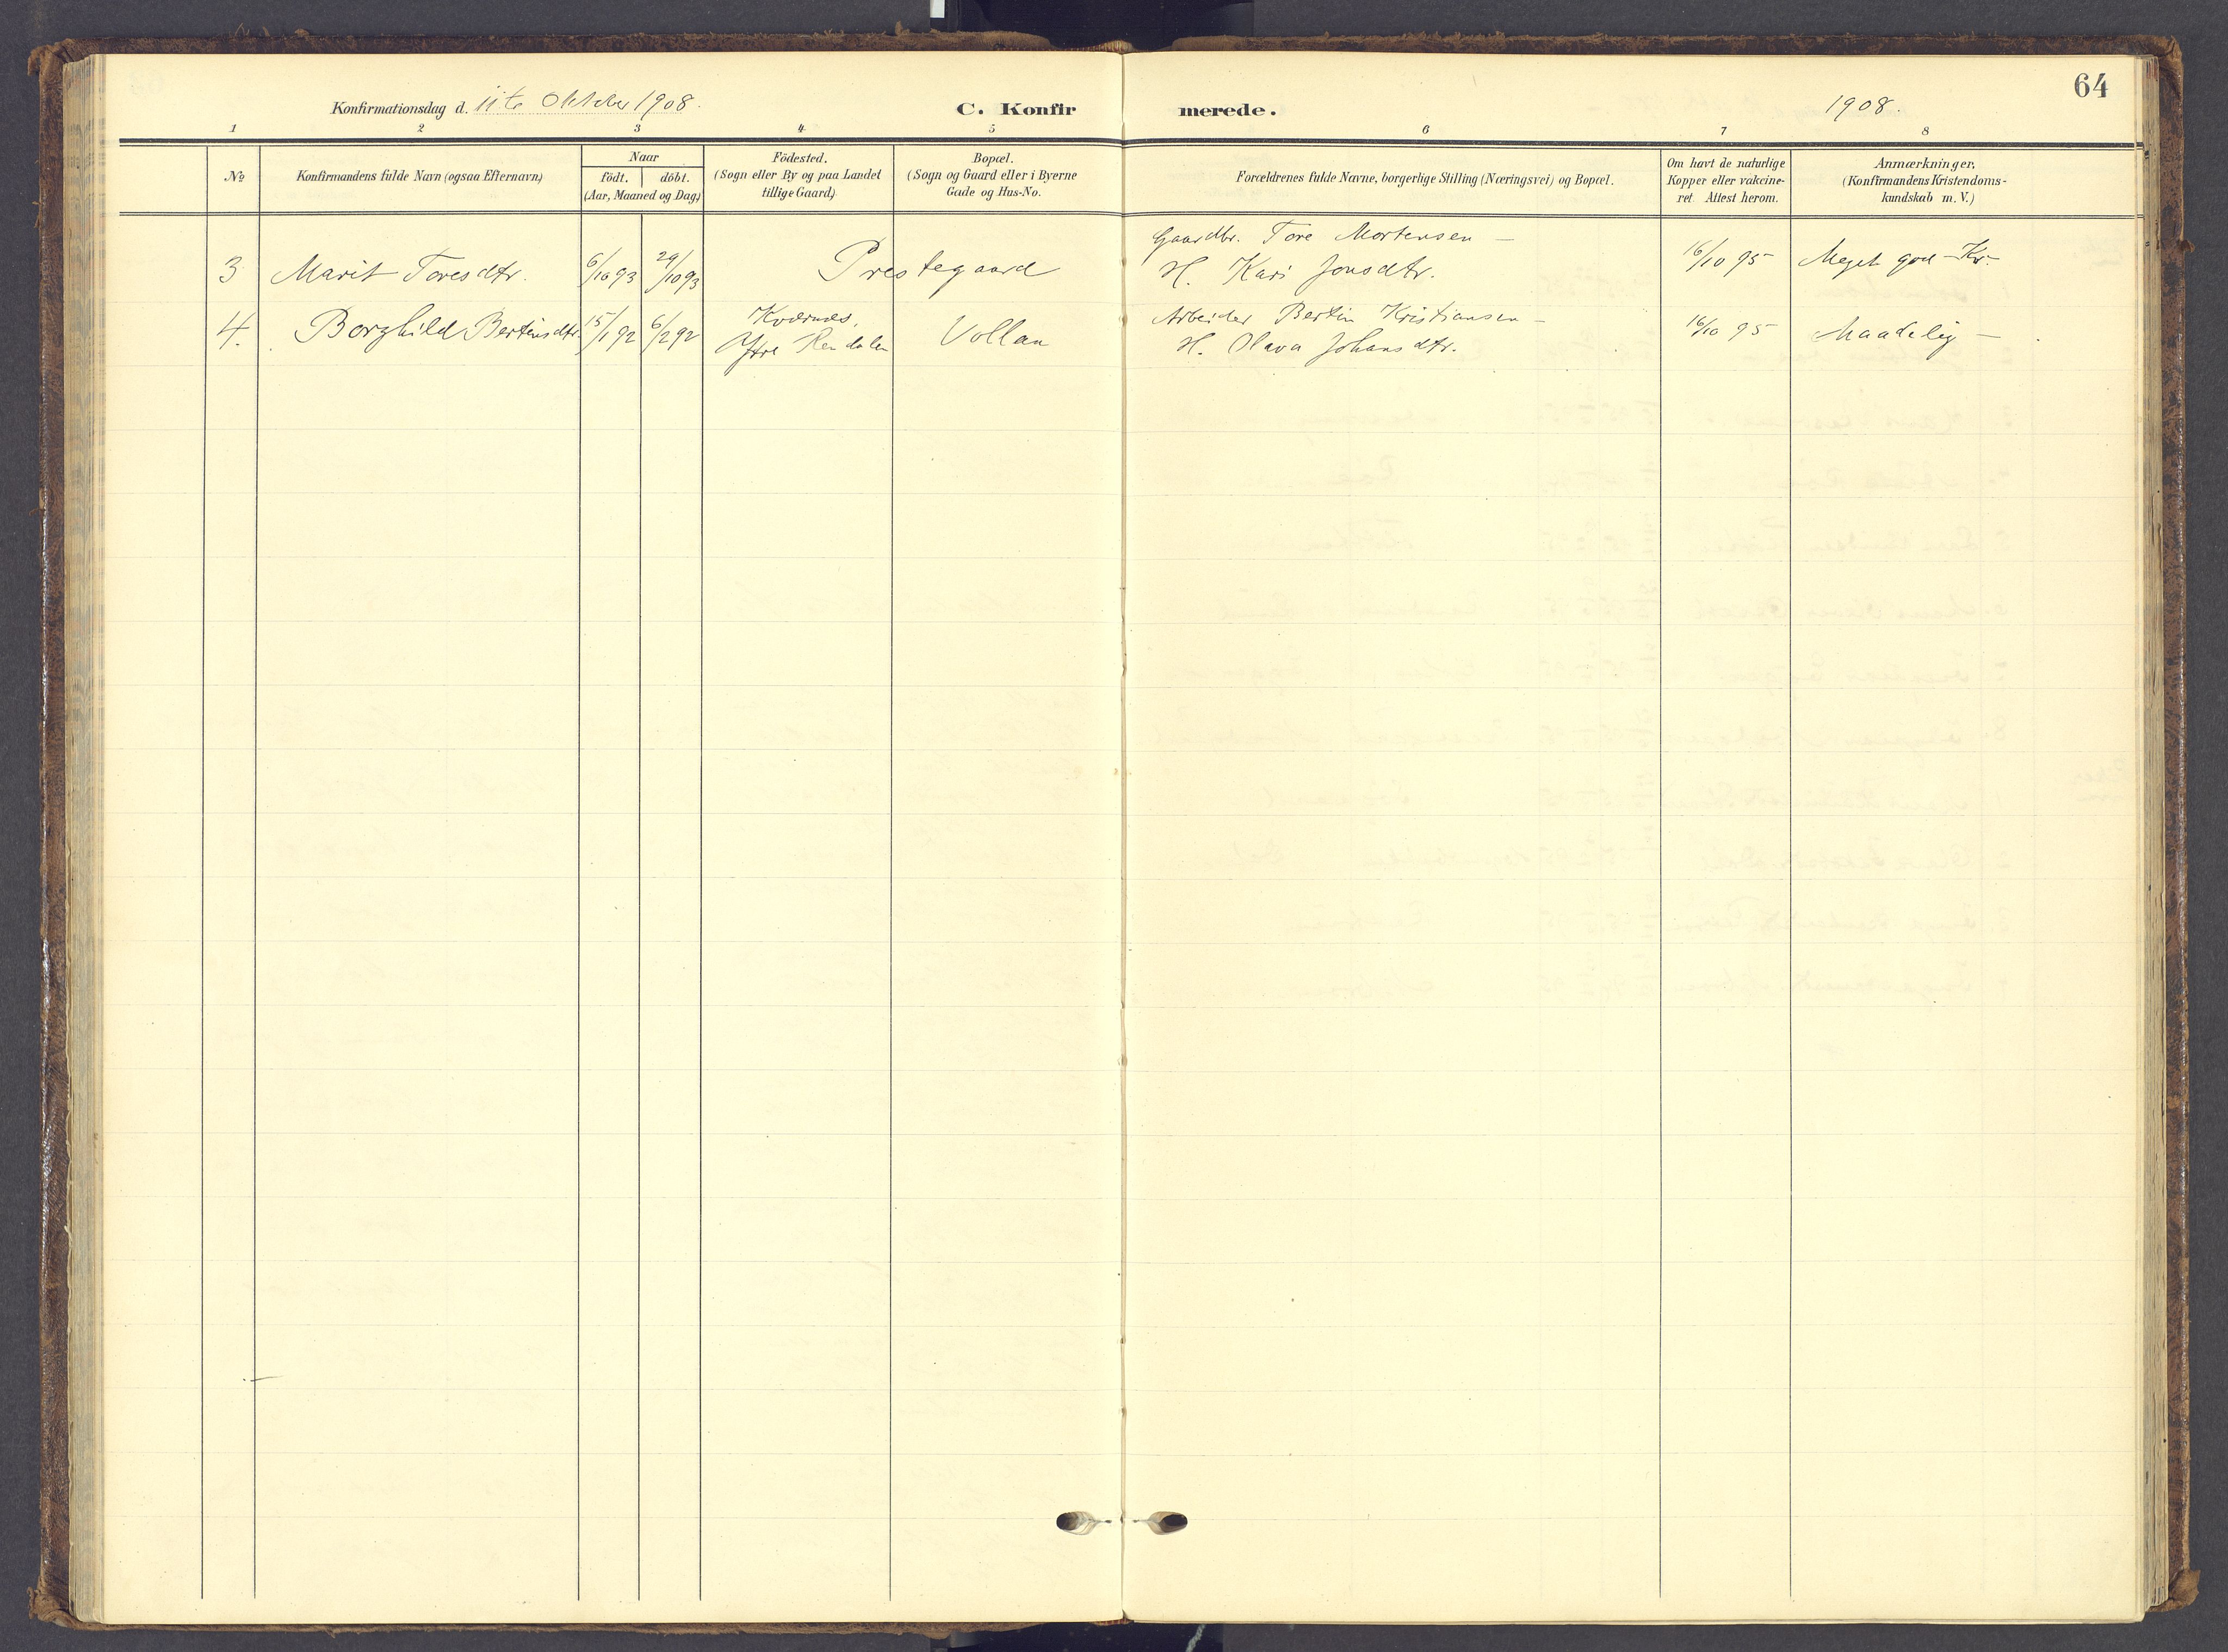 64
Konfirmationsdag d. 11te Oktober 1908.
C. Konfirmerede.
1908.
1 2 3 4 5 6 7 8
No
Konfirmandens fulde Navn (ogsaa Efternavn)
Naar
födt. döbt.
(Aar, Maaned og Dag)
Födested.
(Sogn eller By og paa Landet
tillige Gaard)
Bopæl.
(Sogn og Gaard eller i Byerne
Gade og Hus-No.
Forældrenes fulde Navne, borgerlige Stilling (Næringsvei) og Bopæl.
Om havt de naturlige
Kopper eller vakcine-
ret. Attest herom.
Anmærkninger.
(Konfirmandens Kristendoms-
kundskab m. V.)
3 Marit Toresdtr. 6/10 93 29/10 93 Prestegaard Gaardbr. Tore Mortensen —
H. Kari Jonsdtr. 16/10 95 Meget god - Kr.
4. Borghild Bertinsdtr. 15/1 92 6/2 92 Kværnes,
Ytre Vollan Arbeider Bertin Kristiansen —
H. Olava Johansdtr. 16/10 95 Maadelig —